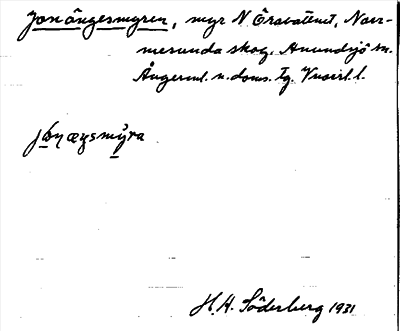 Jonängesmyren, myr N Öravattnet, Norr-
mesunda skog, Anundsjö sn.
Ångerml. n. doms. tg. Vnorrl. l.
H. A. Söderberg 1931